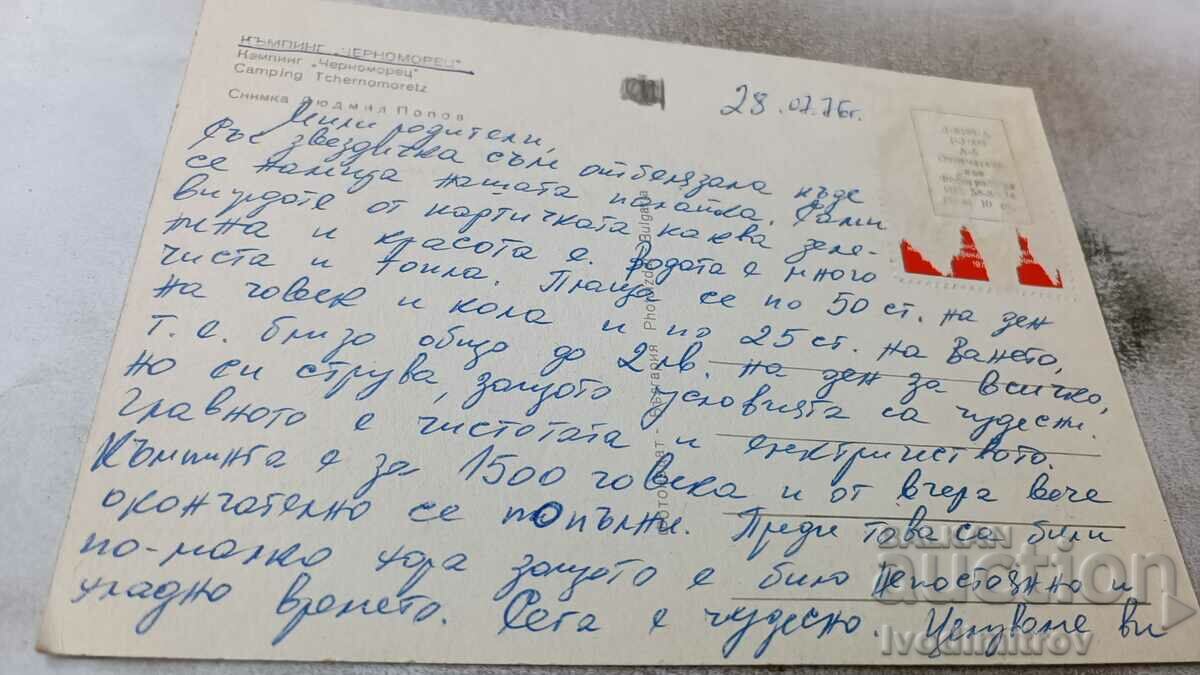 КЪМПИНГ „ЧЕРНОМОРЕЦ"
Кэмпинг „Черноморец"
Camping Tchernomoretz
Снимка Людмил Попов
28.07.76г.
Мили родители,
Със звездичка съм отбелязала къде
се намира нашата палатка. Сами
виждате от картичката каква зеле-
нина и красота е. Водата е много
чиста и топла. Плаща се по 50 ст. на ден
на човек и кола и по 25 ст. на Ването,
т.е. близо общо до 2 лв. на ден за всичко,
но си струва, защото условията са чудесни.
главното е чистотата и електричеството.
Къмпинга е за 1500 човека и от вчера вече
окончателно се попълни. Преди това са били
по-малко хора защото е било непостоянно и
хладно времето. Сега е чудесно. Целуваме ви
България Photoizdat Bulgaria
BALKAN
auction
Ivodimitrov